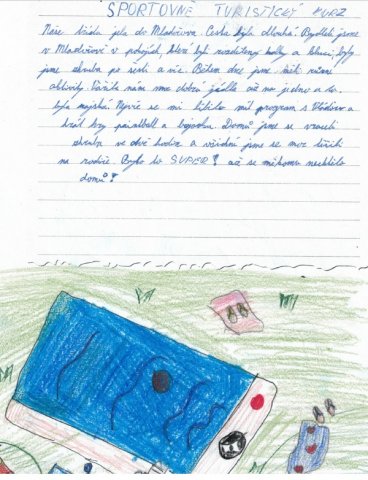 SPORTOVNĚ TURISTICKÝ KURZ
Naše třída jela do Mladějova. Cesta byla dlouhá. Bydleli jsme
v Mladějově v pokojích, které byl rozděleny holky a kluci, byly
jsme zhruba po šesti a více. Během dne jsme měli různé
aktivity. Vařila nám moc dobrá jídla až na jedno a to
byla majská. Nejvíc se mi líbilo
hrát hry paintball a bojovku. Domů jsme se vraceli
zhruba ve dvě hodin a všichni jsme se moc těšili
na rodiče. Bylo to SUPER! až se nikomu nechtělo
domů!